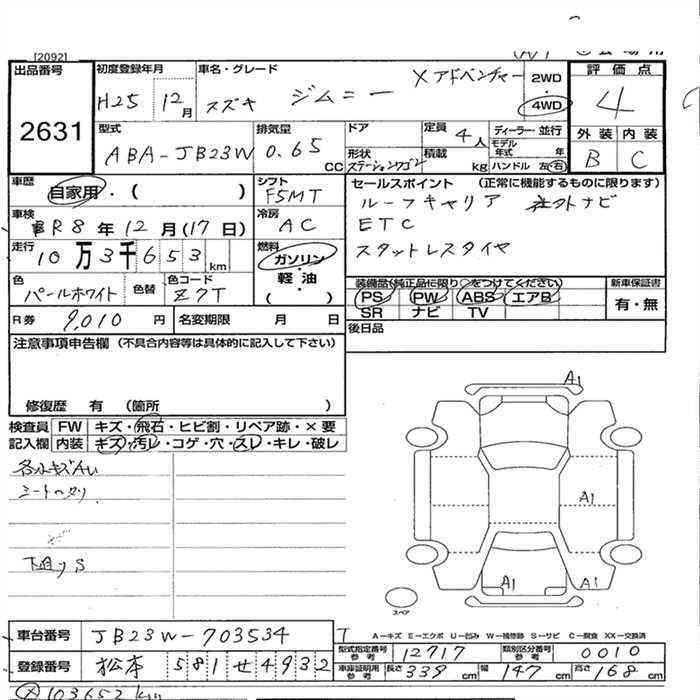 [2092]
出品番号
2631
初度登録年月
H25 12月
車名・グレード
スズキ ジムニー Xアドベンチャー
2WD
・
4WD
評価点
4
外装 内装
B C
型式
ABA-JB23W
排気量
0.65
CC
ドア
形状
ステーションワゴン
定員
4人
積載
kg
ディーラー・並行
モデル年式 年
ハンドル 左 右
車歴
自家用・( )
シフト
F5MT
セールスポイント (正常に機能するものに限ります)
ルーフキャリア 社外ナビ
ETC
スタットレスタイヤ
車検
R8年12月(17日)
冷房
AC
走行
10万3千653km
燃料
ガソリン・
軽・油
( )
色
パールホワイト
色替
色コード
Z7T
装備品(純正品に限り○をつけてください)
PS PW ABS エアB
SR ナビ TV
新車保証書
有・無
R券 9,010円
名変期限 月 日
後日品
注意事項申告欄(不具合内容等は具体的に記入して下さい)
修復歴 有 (箇所 )
検査員 FW キズ・飛石・ヒビ割・リペア跡・×要
記入欄 内装 キズ・汚レ・コゲ・穴・スレ・キレ・破レ
各小キズAU
シートヘタリ
下廻りS
A1
A1
A1
A1
スペア
車台番号 JB23W-703534
登録番号 松本 581 せ4932
A―キズ E―エクボ U―凹み W―補修跡 S―サビ C―腐食 XX―交換済
型式指定番号参考 12717
類別区分番号参考 0010
車庫証明用参考 長さ 339 cm 幅 147 cm 高さ 168 cm
103652km